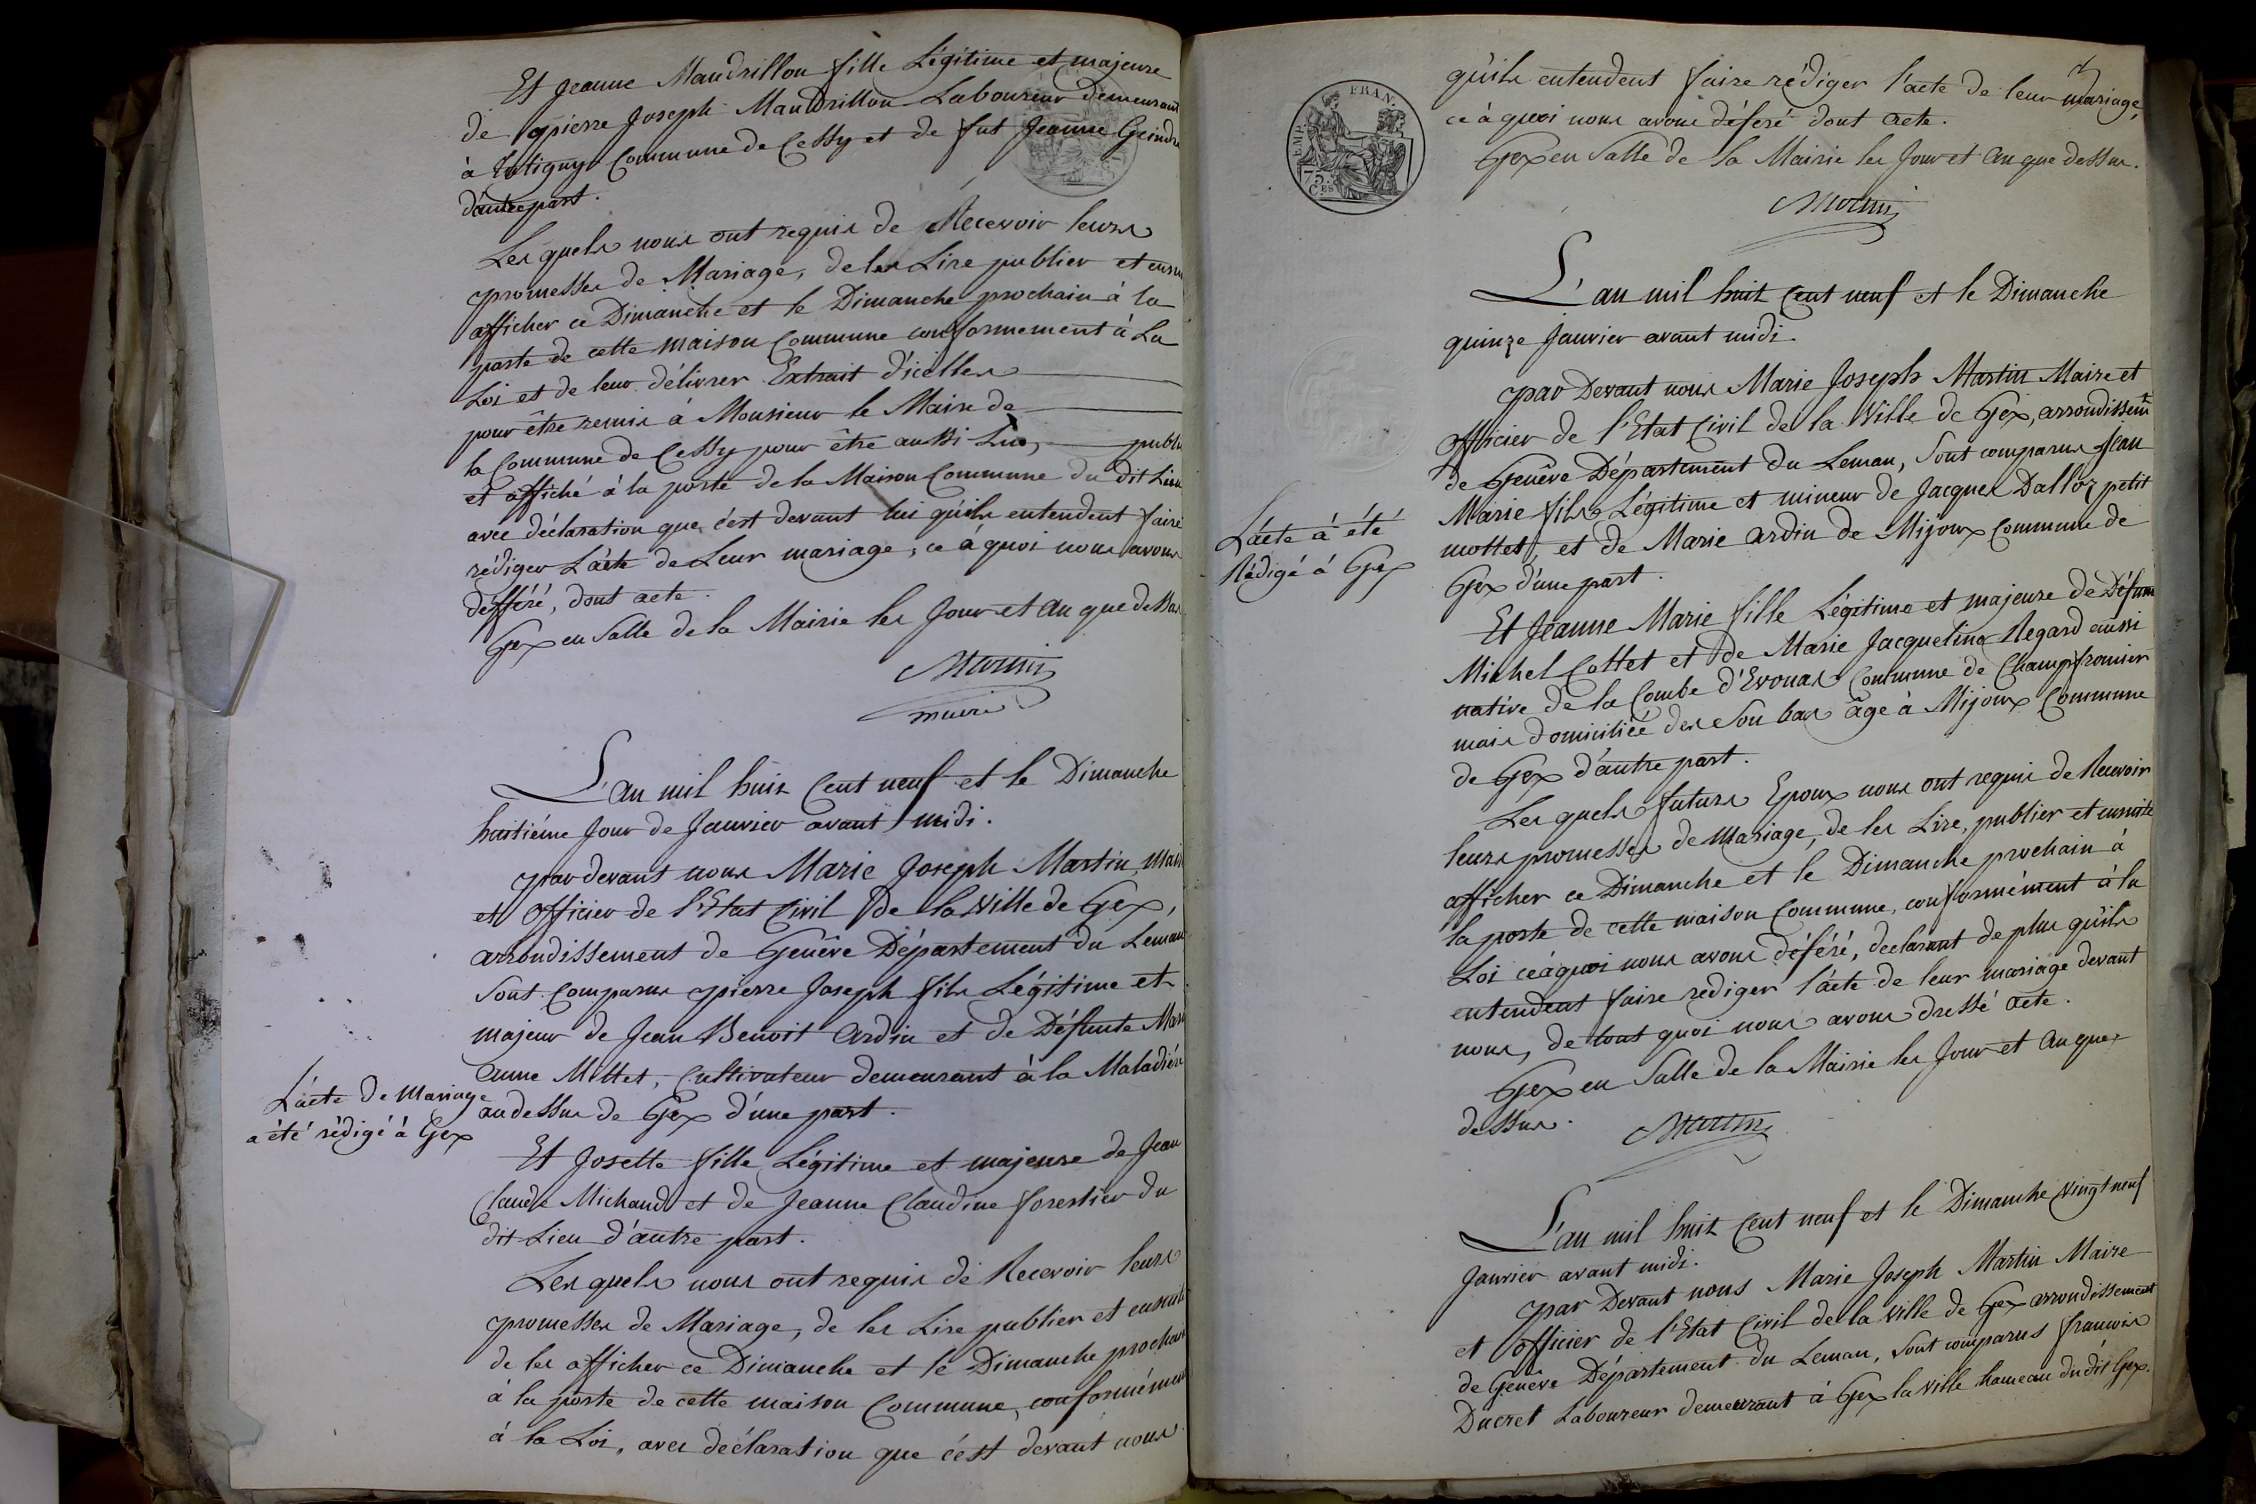 Et Jeanne Mandrillon fille Légitime et majeure
de pierre Joseph Mandrillon Laboureur demeurant
à Tutigny Commune de Cessy et de fut Jeanne Grindre
d'autre part.
Les quels nous ont requis de Recevoir leurs
promesses de Mariage, de les Lire publier et ensu
afficher ce Dimanche et le Dimanche prochain à la
porte de cette maison Commune conformement à La
Loi et de leur délivrer Extrait d'icelles
pour être remis à Monsieur le Maire de
la Commune de Cessy pour être aussi Lue, publi
et affiché à la porte de la Maison Commune du dit Lieu
avec déclaration que c'est devant lui qu'ils entendent faire
rédiger L'acte de Leur mariage; ce à quoi nous avons
défféré, dont acte.
Gex en Salle de la Mairie les Jour et an que dessus
Martin
maire
L'an mil huit Cent neuf et le Dimanche
huitiéme Jour de Janvier avant midi.
par devant nous Marie Joseph Martin, Mair
et officier de l'Etat Civil de la Ville de Gex,
arrondissement de Genêve Département du Leman
Sont Comparus pierre Joseph fils Légitime et
majeur de Jean Benoit Ardin et de Défunte Mari
anne Mottet, Cultivateur demeurant à la Maladiére
au dessus de Gex d'une part.
L'acte de Mariage
a été rédigé à Gex
Et Josette fille Légitime et majeure de Jean
Claude Michaud et de Jeanne Claudine forestier du
dit Lieu d'autre part.
Les quels nous ont requis de Recevoir leurs
promesses de Mariage, de les Lire publier et ensuite
de les afficher ce Dimanche et le Dimanche prochain
à la porte de cette maison Commune, conformément
à la Loi, avec déclaration que c'est devant nous
qu'ils entendent faire rédiger l'acte de leur mariage,
ce à quoi nous avons déféré dont acte.
Gex en Salle de la Mairie les Jour et an que dessus.
Martin
EMP. FRAN.
75
CES
L'an mil huit Cent neuf et le Dimanche
quinze Janvier avant midi.
par Devant nous Marie Joseph Martin Maire et
officier de l'Etat Civil de la Ville de Gex, arrondissemt
de Genêve Département du Leman, Sont comparus Jean
Marie fils Légitime et mineur de Jacques Dalloz petit
mottet, et de Marie Ardin de Mijoux Commune de
Gex d'une part.
L'acte à été
Rédigé à Gex
Et Jeanne Marie fille Légitime et majeure de Défunt
Michel Cottet et de Marie Jacqueline Regard aussi
native de la Combe d'Evouas Commune de Champfromier
mais domiciliée des Son bas âge à Mijoux Commune
de Gex d'autre part.
Les quels futurs Epoux nous ont requis de Recevoir
leurs promesses de Mariage, de les Lire, publier et ensuite
afficher ce Dimanche et le Dimanche prochain à
la porte de cette maison Commune, conformément à la
Loi ce à quoi nous avons déféré, declarant de plus qu'ils
entendent faire rediger l'acte de leur mariage devant
nous, de tout quoi nous avons dressé acte.
Gex en Salle de la Mairie les Jour et an que
dessus.
Martin
L'an mil huit Cent neuf et le Dimanche vingt neuf
Janvier avant midi.
par Devant nous Marie Joseph Martin Maire
et officier de l'Etat Civil de la ville de Gex arrondissement
de Genêve Département du Leman, Sont comparus francois
Ducret Laboureur demeurant à Gex la ville hameau du dit Gex.